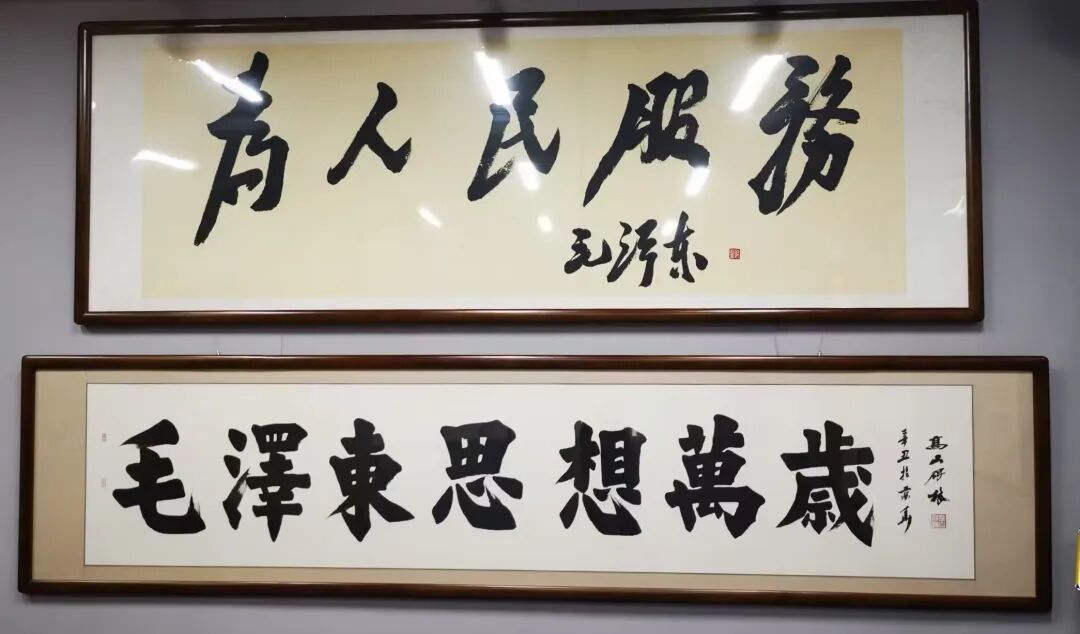 为人民服務
毛泽东
毛澤東思想萬歳
辛丑於